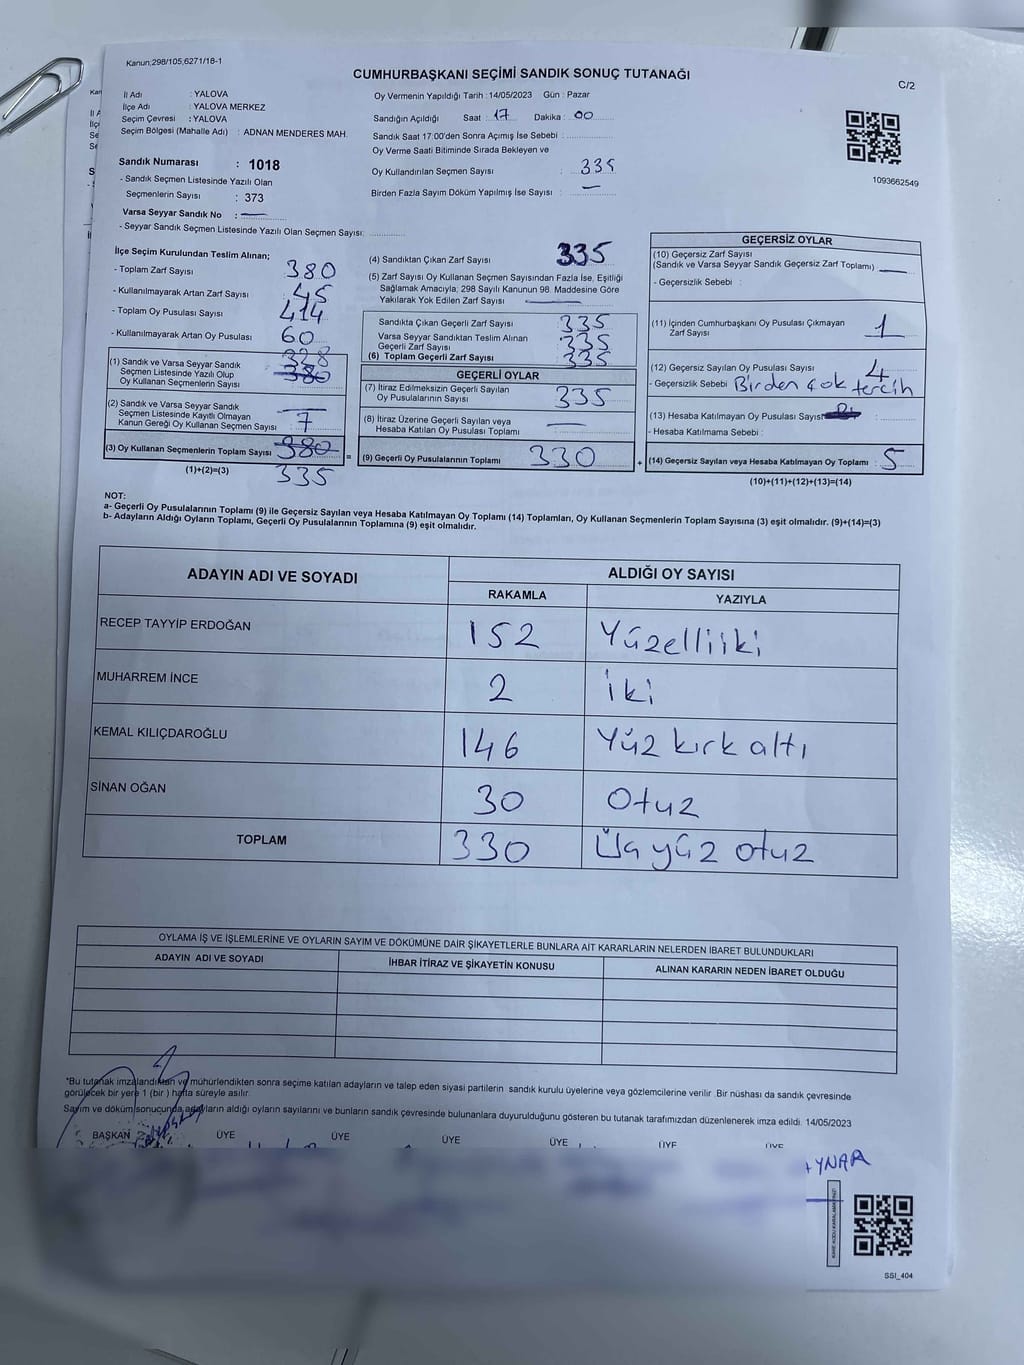 Kanun;298/105,6271/18-1
CUMHURBAŞKANI SEÇİMİ SANDIK SONUÇ TUTANAĞI
C/2
İl Adı : YALOVA
İlçe Adı : YALOVA MERKEZ
Seçim Çevresi : YALOVA
Seçim Bölgesi (Mahalle Adı) : ADNAN MENDERES MAH.
Sandık Numarası : 1018
- Sandık Seçmen Listesinde Yazılı Olan
Seçmenlerin Sayısı : 373
Varsa Seyyar Sandık No : —
- Seyyar Sandık Seçmen Listesinde Yazılı Olan Seçmen Sayısı:
Oy Vermenin Yapıldığı Tarih :14/05/2023 Gün : Pazar
Sandığın Açıldığı Saat : 17 Dakika : 00
Sandık Saat 17:00'den Sonra Açımış İse Sebebi :
Oy Verme Saati Bitiminde Sırada Bekleyen ve
Oy Kullandırılan Seçmen Sayısı : 335
Birden Fazla Sayım Döküm Yapılmış İse Sayısı : —
1093662549
İlçe Seçim Kurulundan Teslim Alınan;
- Toplam Zarf Sayısı 380
- Kullanılmayarak Artan Zarf Sayısı 45
- Toplam Oy Pusulası Sayısı 414
- Kullanılmayarak Artan Oy Pusulası 60
(1) Sandık ve Varsa Seyyar Sandık
Seçmen Listesinde Yazılı Olup
Oy Kullanan Seçmenlerin Sayısı 328 380
(2) Sandık ve Varsa Seyyar Sandık
Seçmen Listesinde Kayıtlı Olmayan
Kanun Gereği Oy Kullanan Seçmen Sayısı : 7
(3) Oy Kullanan Seçmenlerin Toplam Sayısı 380
(1)+(2)=(3) 335
(4) Sandıktan Çıkan Zarf Sayısı 335
(5) Zarf Sayısı Oy Kullanan Seçmen Sayısından Fazla İse, Eşitliği
Sağlamak Amacıyla; 298 Sayılı Kanunun 98. Maddesine Göre
Yakılarak Yok Edilen Zarf Sayısı : —
Sandıkta Çıkan Geçerli Zarf Sayısı : 335
Varsa Seyyar Sandıktan Teslim Alınan
Geçerli Zarf Sayısı 335
(6) Toplam Geçerli Zarf Sayısı : 335
GEÇERLİ OYLAR
(7) İtiraz Edilmeksizin Geçerli Sayılan
Oy Pusulalarının Sayısı : 335
(8) İtiraz Üzerine Geçerli Sayılan veya
Hesaba Katılan Oy Pusulası Toplamı : —
= (9) Geçerli Oy Pusulalarının Toplamı : 330 +
GEÇERSİZ OYLAR
(10) Geçersiz Zarf Sayısı
(Sandık ve Varsa Seyyar Sandık Geçersiz Zarf Toplamı) —
- Geçersizlik Sebebi :
(11) İçinden Cumhurbaşkanı Oy Pusulası Çıkmayan
Zarf Sayısı : 1
(12) Geçersiz Sayılan Oy Pusulası Sayısı : 4
- Geçersizlik Sebebi Birden çok tercih
(13) Hesaba Katılmayan Oy Pusulası Sayısı
- Hesaba Katılmama Sebebi :
(14) Geçersiz Sayılan veya Hesaba Katılmayan Oy Toplamı : 5
(10)+(11)+(12)+(13)=(14)
NOT:
a- Geçerli Oy Pusulalarının Toplamı (9) ile Geçersiz Sayılan veya Hesaba Katılmayan Oy Toplamı (14) Toplamları, Oy Kullanan Seçmenlerin Toplam Sayısına (3) eşit olmalıdır. (9)+(14)=(3)
b- Adayların Aldığı Oyların Toplamı, Geçerli Oy Pusulalarının Toplamına (9) eşit olmalıdır.
ADAYIN ADI VE SOYADI ALDIĞI OY SAYISI
RAKAMLA YAZIYLA
RECEP TAYYİP ERDOĞAN 152 Yüzelliiki
MUHARREM İNCE 2 iki
KEMAL KILIÇDAROĞLU 146 Yüz kırk altı
SİNAN OĞAN 30 Otuz
TOPLAM 330 Üç yüz otuz
OYLAMA İŞ VE İŞLEMLERİNE VE OYLARIN SAYIM VE DÖKÜMÜNE DAİR ŞİKAYETLERLE BUNLARA AİT KARARLARIN NELERDEN İBARET BULUNDUKLARI
ADAYIN ADI VE SOYADI İHBAR İTİRAZ VE ŞİKAYETİN KONUSU ALINAN KARARIN NEDEN İBARET OLDUĞU
*Bu tutanak imzalandıktan ve mühürlendikten sonra seçime katılan adayların ve talep eden siyasi partilerin sandık kurulu üyelerine veya gözlemcilerine verilir. Bir nüshası da sandık çevresinde
görülecek bir yere 1 (bir ) hafta süreyle asılır.
Sayım ve döküm sonucunda adayların aldığı oyların sayılarını ve bunların sandık çevresinde bulunanlara duyurulduğunu gösteren bu tutanak tarafımızdan düzenlenerek imza edildi. 14/05/2023
BAŞKAN ÜYE ÜYE ÜYE ÜYE ÜYE ÜYE
AYNAR
SSI_404